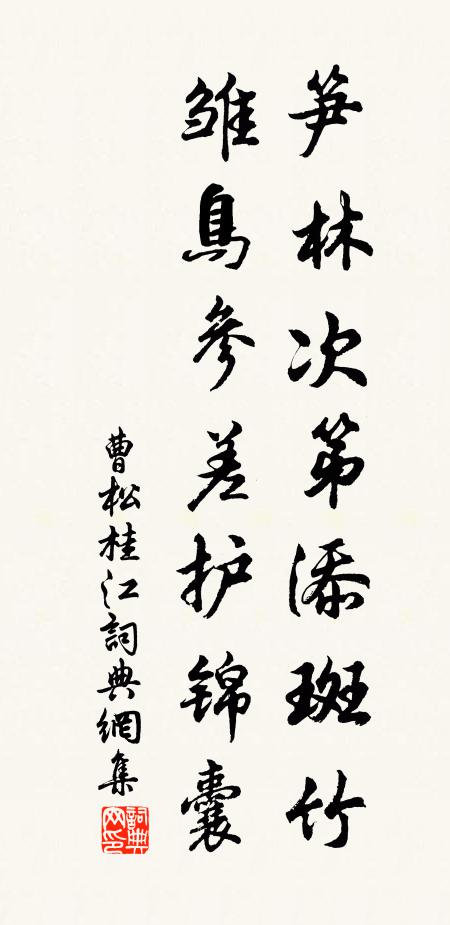 笋林次第添斑竹
雏鳥參差护锦囊
曹松桂江詞典網集
詞典网印